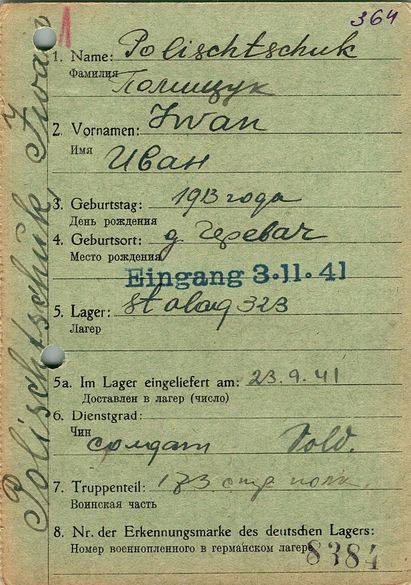 364
1. Name: Polischtschuk
Фамилия Полищук
2. Vornamen: Iwan
Имя Иван
3. Geburtstag: 1913 года
День рождения
4. Geburtsort: д Черевач
Место рождения
Eingang 3.11.41
5. Lager: Stalag 323
Лагер
5a. Im Lager eingeliefert am: 23.9.41
Доставлен в лагер (число)
6. Dienstgrad:
Чин
солдат Sold.
7. Truppenteil: стр полк
Воинская часть
8. Nr. der Erkennungsmarke des deutschen Lagers:
Номер военнопленного в германском лагере
8384
Polischtschuk, Iwan